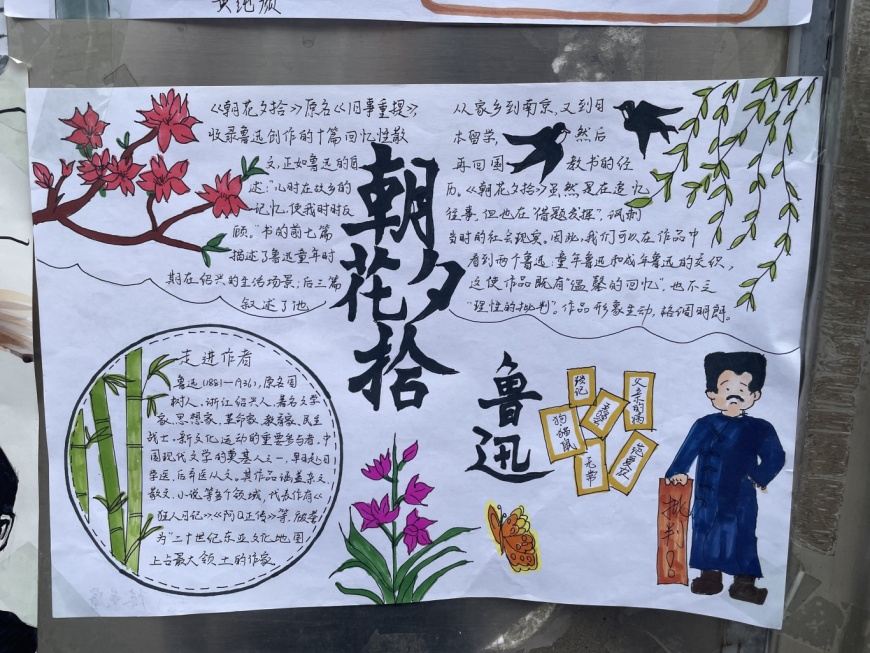 黄纯颀
《朝花夕拾》原名《旧事重提》,
收录鲁迅创作的十篇回忆性散
文,正如鲁迅的自
述:"儿时在故乡的
记忆,使我时时反
顾。"书的前七篇
描述了鲁迅童年时
期在绍兴的生活场景;后三篇
叙述了他
从家乡到南京,又到日
本留学,然后
再回国教书的经
历。《朝花夕拾》虽然是在追忆
往事,但也在"借题发挥",讽刺
当时的社会现实。因此,我们可以在作品中
看到两个鲁迅:童年鲁迅和成年鲁迅的交织,
这使作品既有"温馨的回忆",也不乏
"理性的批判"。作品形象生动,格调明朗。
朝
花夕
拾
鲁
迅
走进作者
鲁迅(1881—1936),原名周
树人,浙江绍兴人,著名文学
家、思想家、革命家、教育家、民主
战士,新文化运动的重要参与者,中
国现代文学的奠基人之一,早年赴日
学医,后弃医从文。其作品涵盖杂文、
散文、小说等多个领域,代表作有《
狂人日记》、《阿Q正传》等,被誉
为"二十世纪东亚文化地图
上占最大领土的作家
后记
五猖会
父亲的病
狗猫鼠
无常
范爱农
批判!